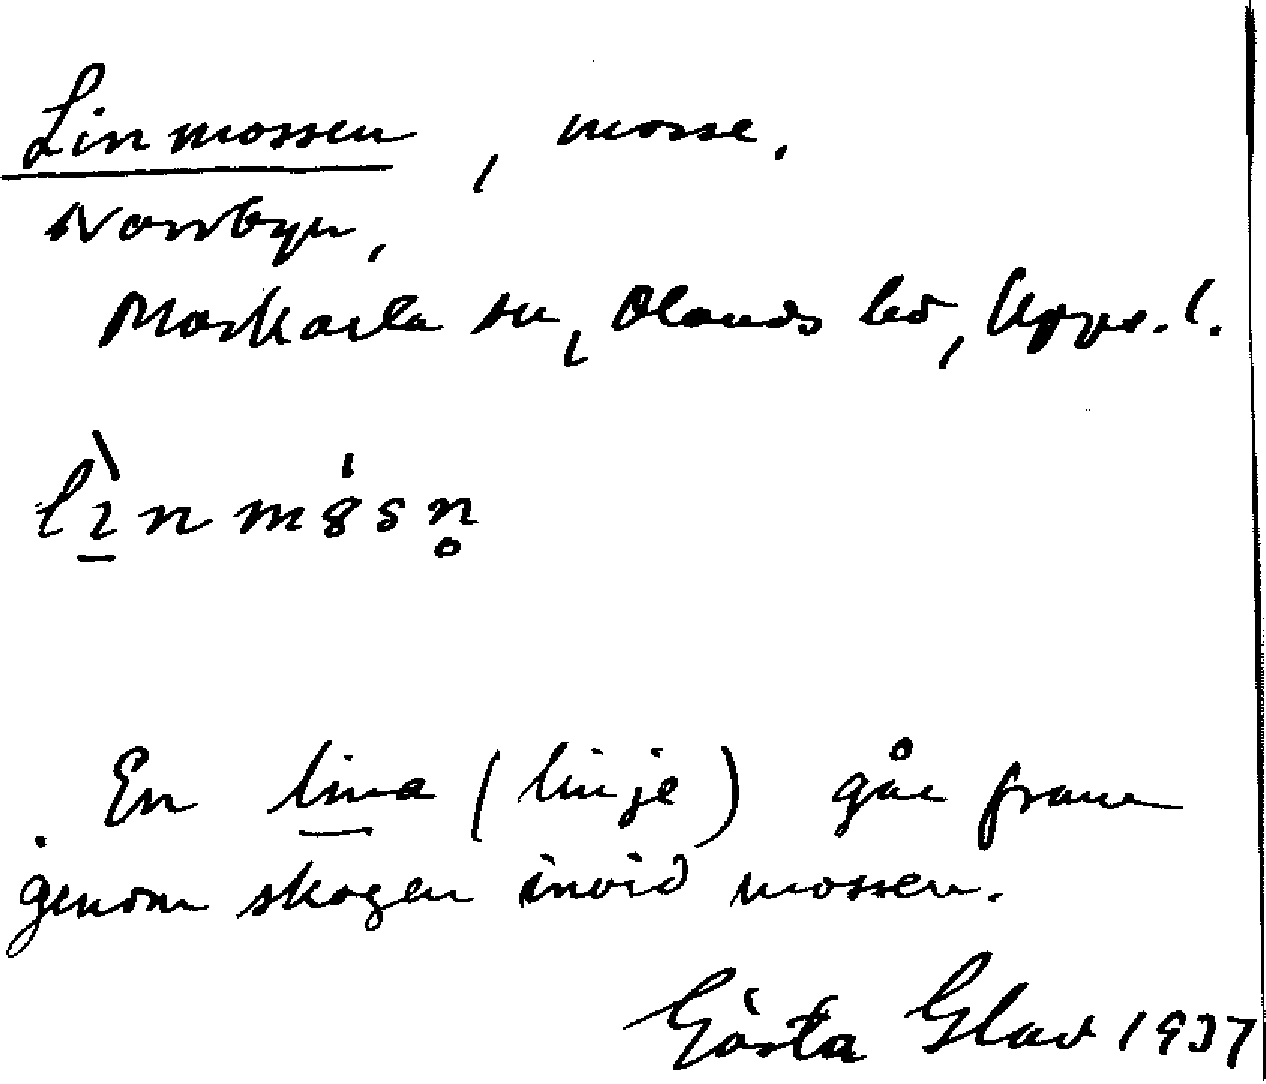 Linmossen, mosse.
Norrbyn,
Morkarla sn, Olands hd, Upps. l.
lı̱̀nmȣ̍sn̥
En lina (linje) går fram
genom skogen invid mossen.
Gösta Glad 1937